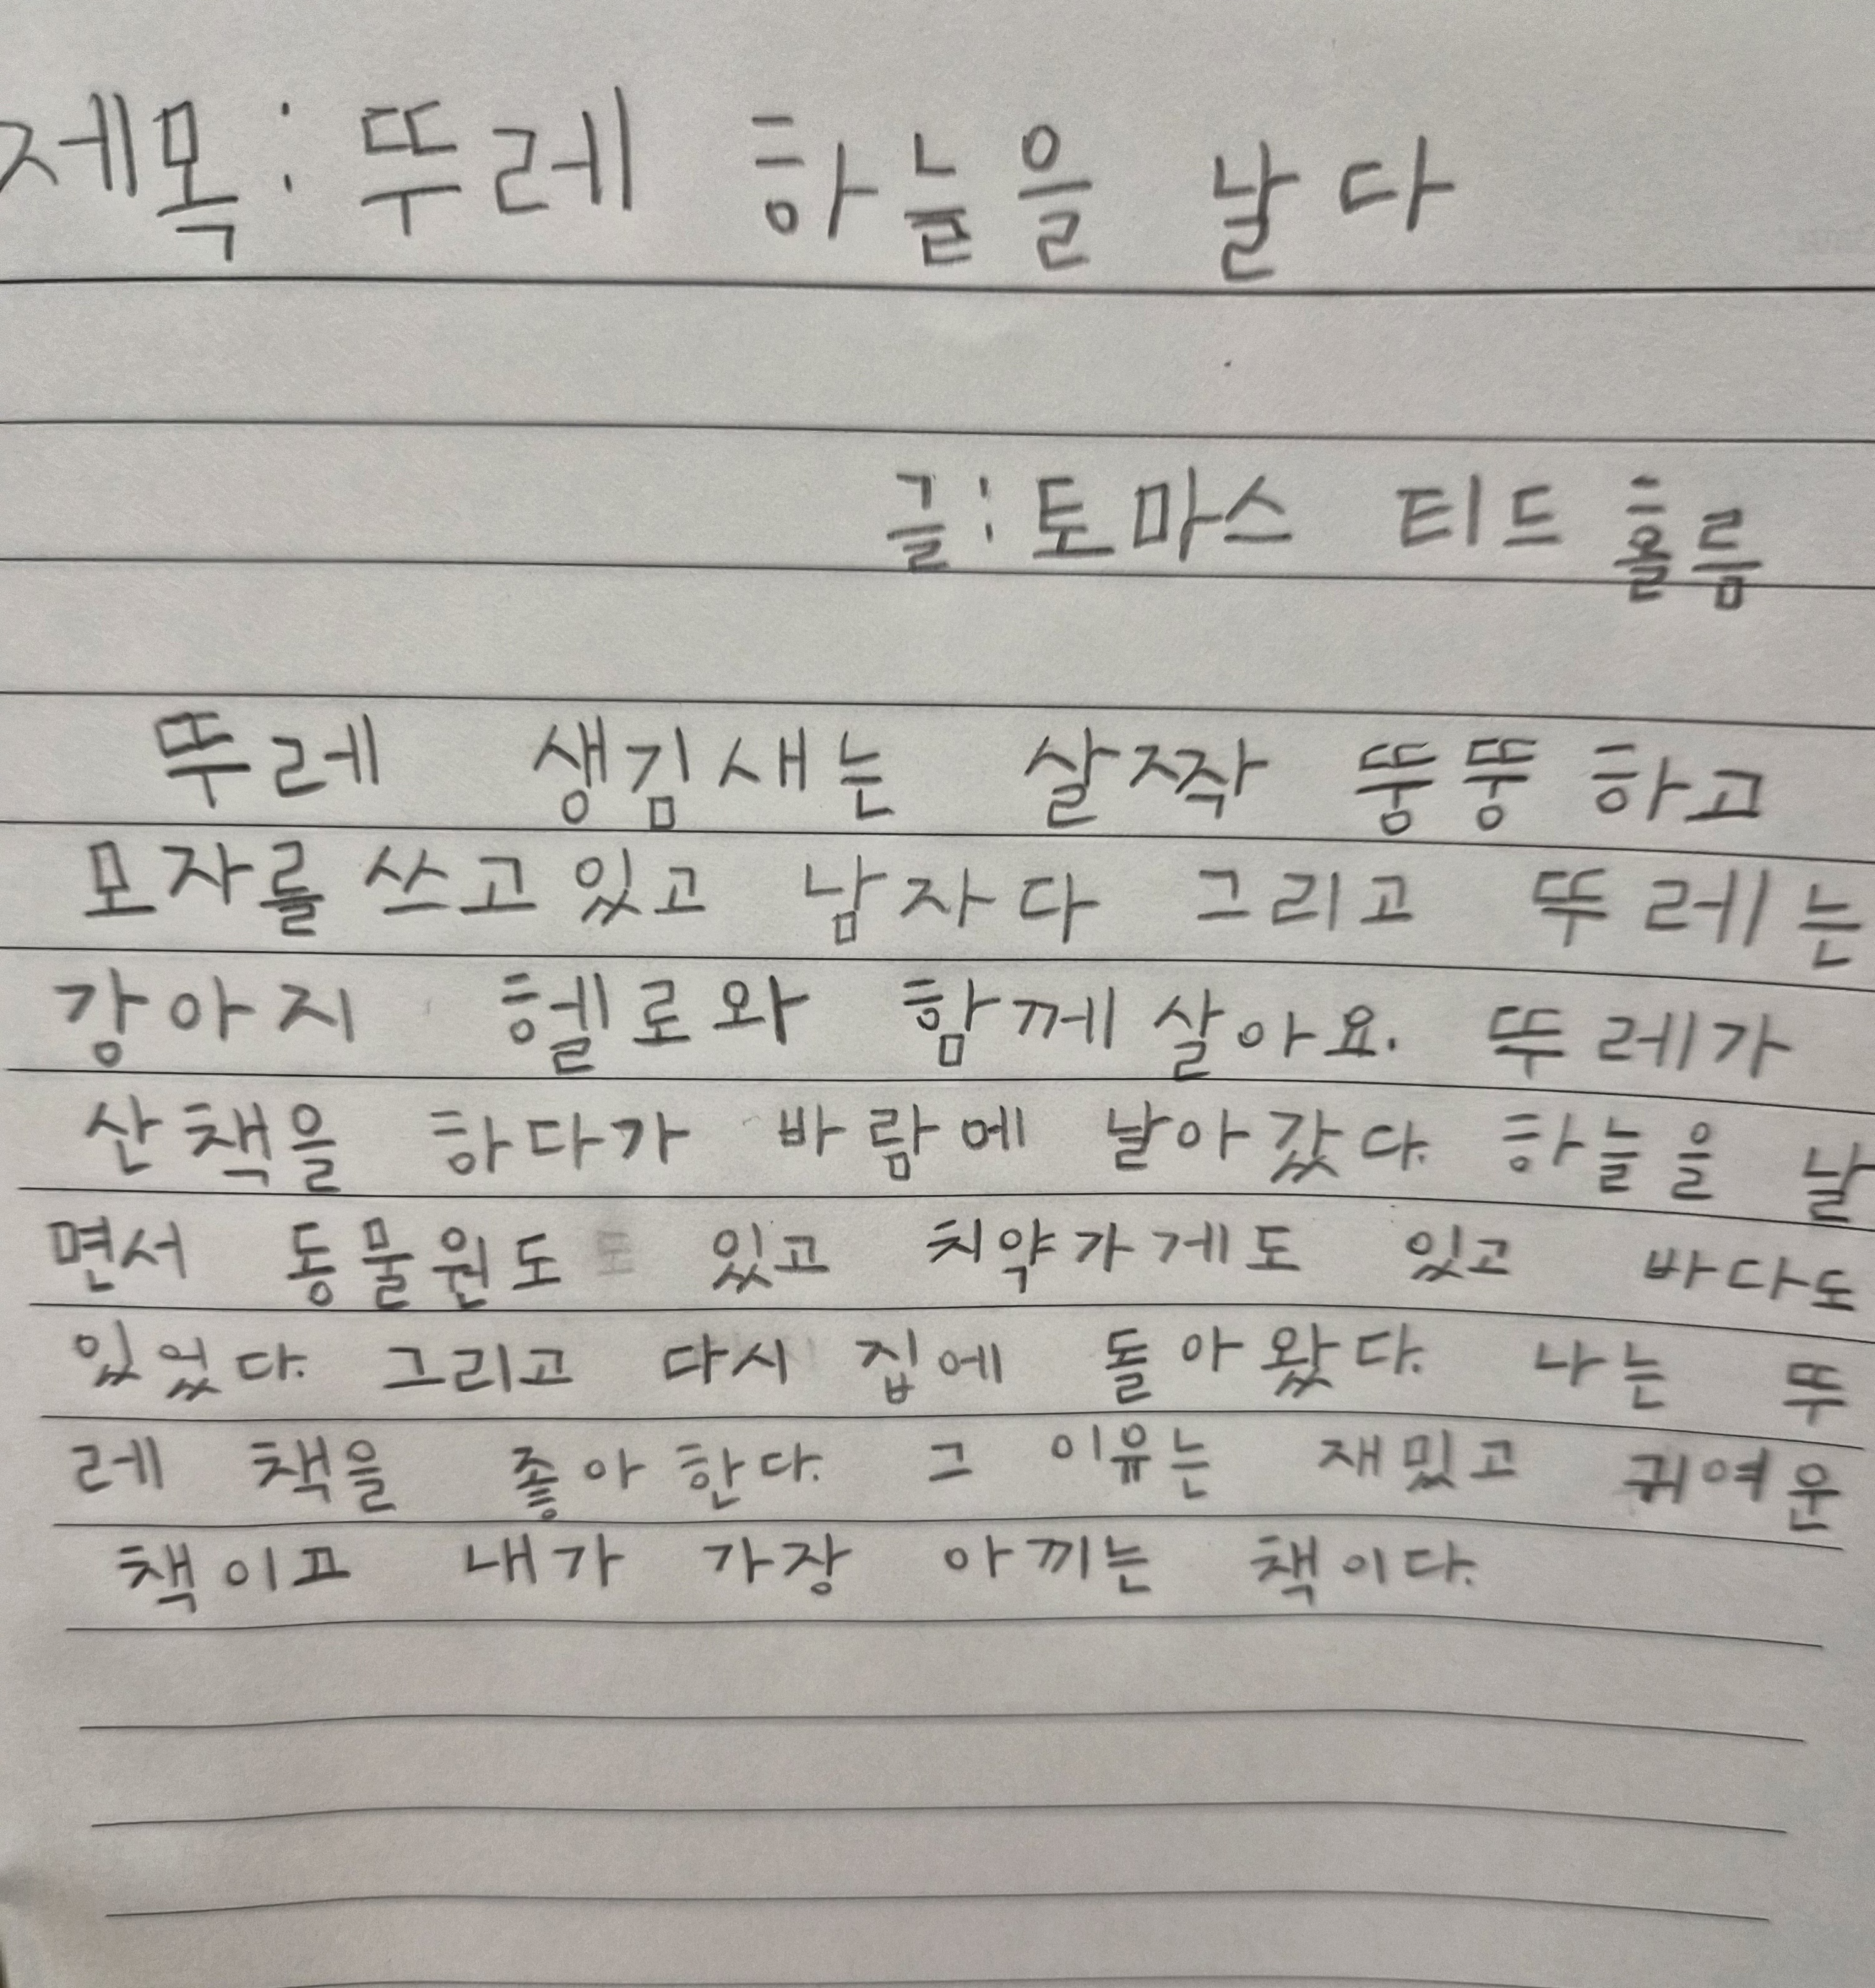 제목: 뚜레 하늘을 날다
글: 토마스 티드홀름
뚜레 생김새는 살짝 뚱뚱하고
모자를 쓰고있고 남자다 그리고 뚜레는
강아지 헬로와 함께 살아요. 뚜레가
산책을 하다가 바람에 날아갔다. 하늘을 날
면서 동물원도 있고 치약가게도 있고 바다도
있었다. 그리고 다시 집에 돌아왔다. 나는 뚜
레 책을 좋아한다. 그 이유는 재밌고 귀여운
책이고 내가 가장 아끼는 책이다.